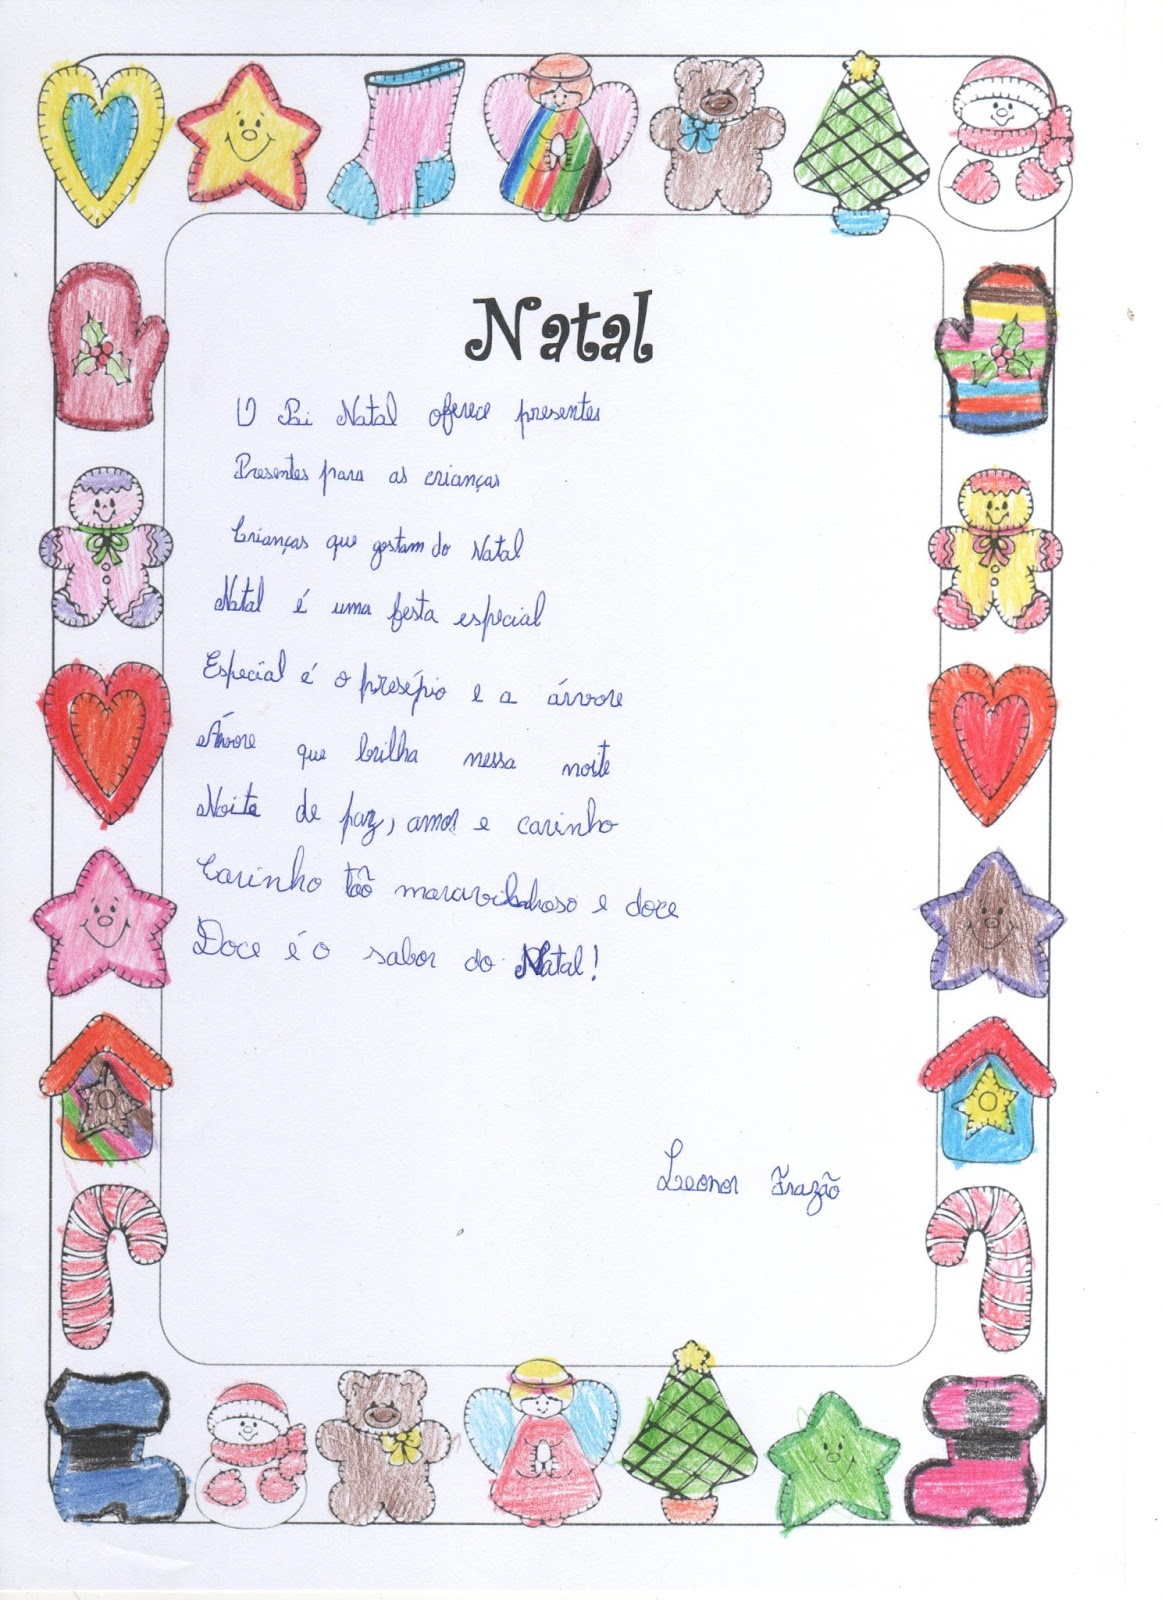 Natal
O Pai Natal oferece presentes
Presentes para as crianças
Crianças que gostam do Natal
Natal é uma festa especial
Especial é o presépio e a árvore
Árvore que brilha nessa noite
Noite de paz, amor e carinho
Carinho tão maravilhoso e doce
Doce é o sabor do Natal!
Leonor Frazão